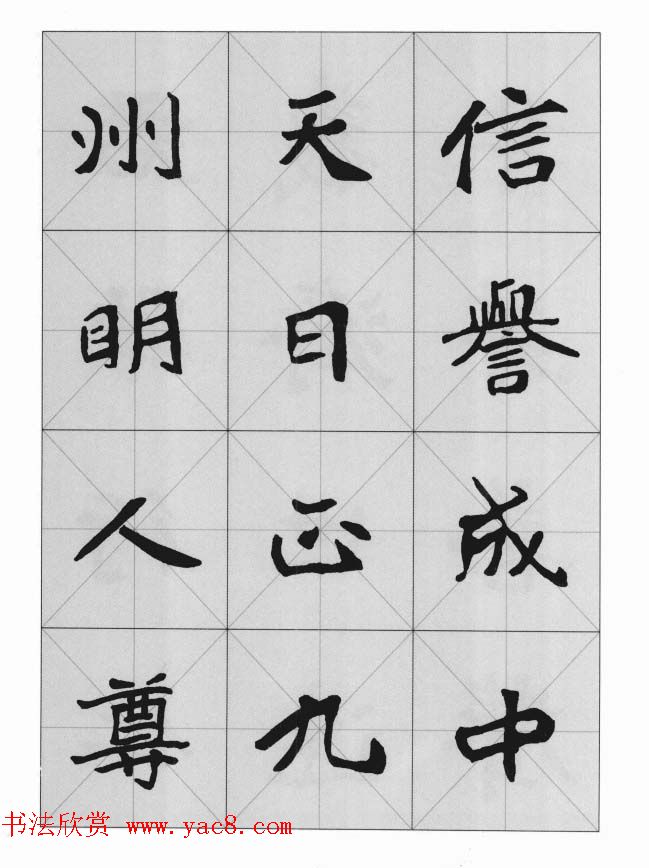 信譽成中
天日正九
州明人尊
书法欣赏 www.yac8.com